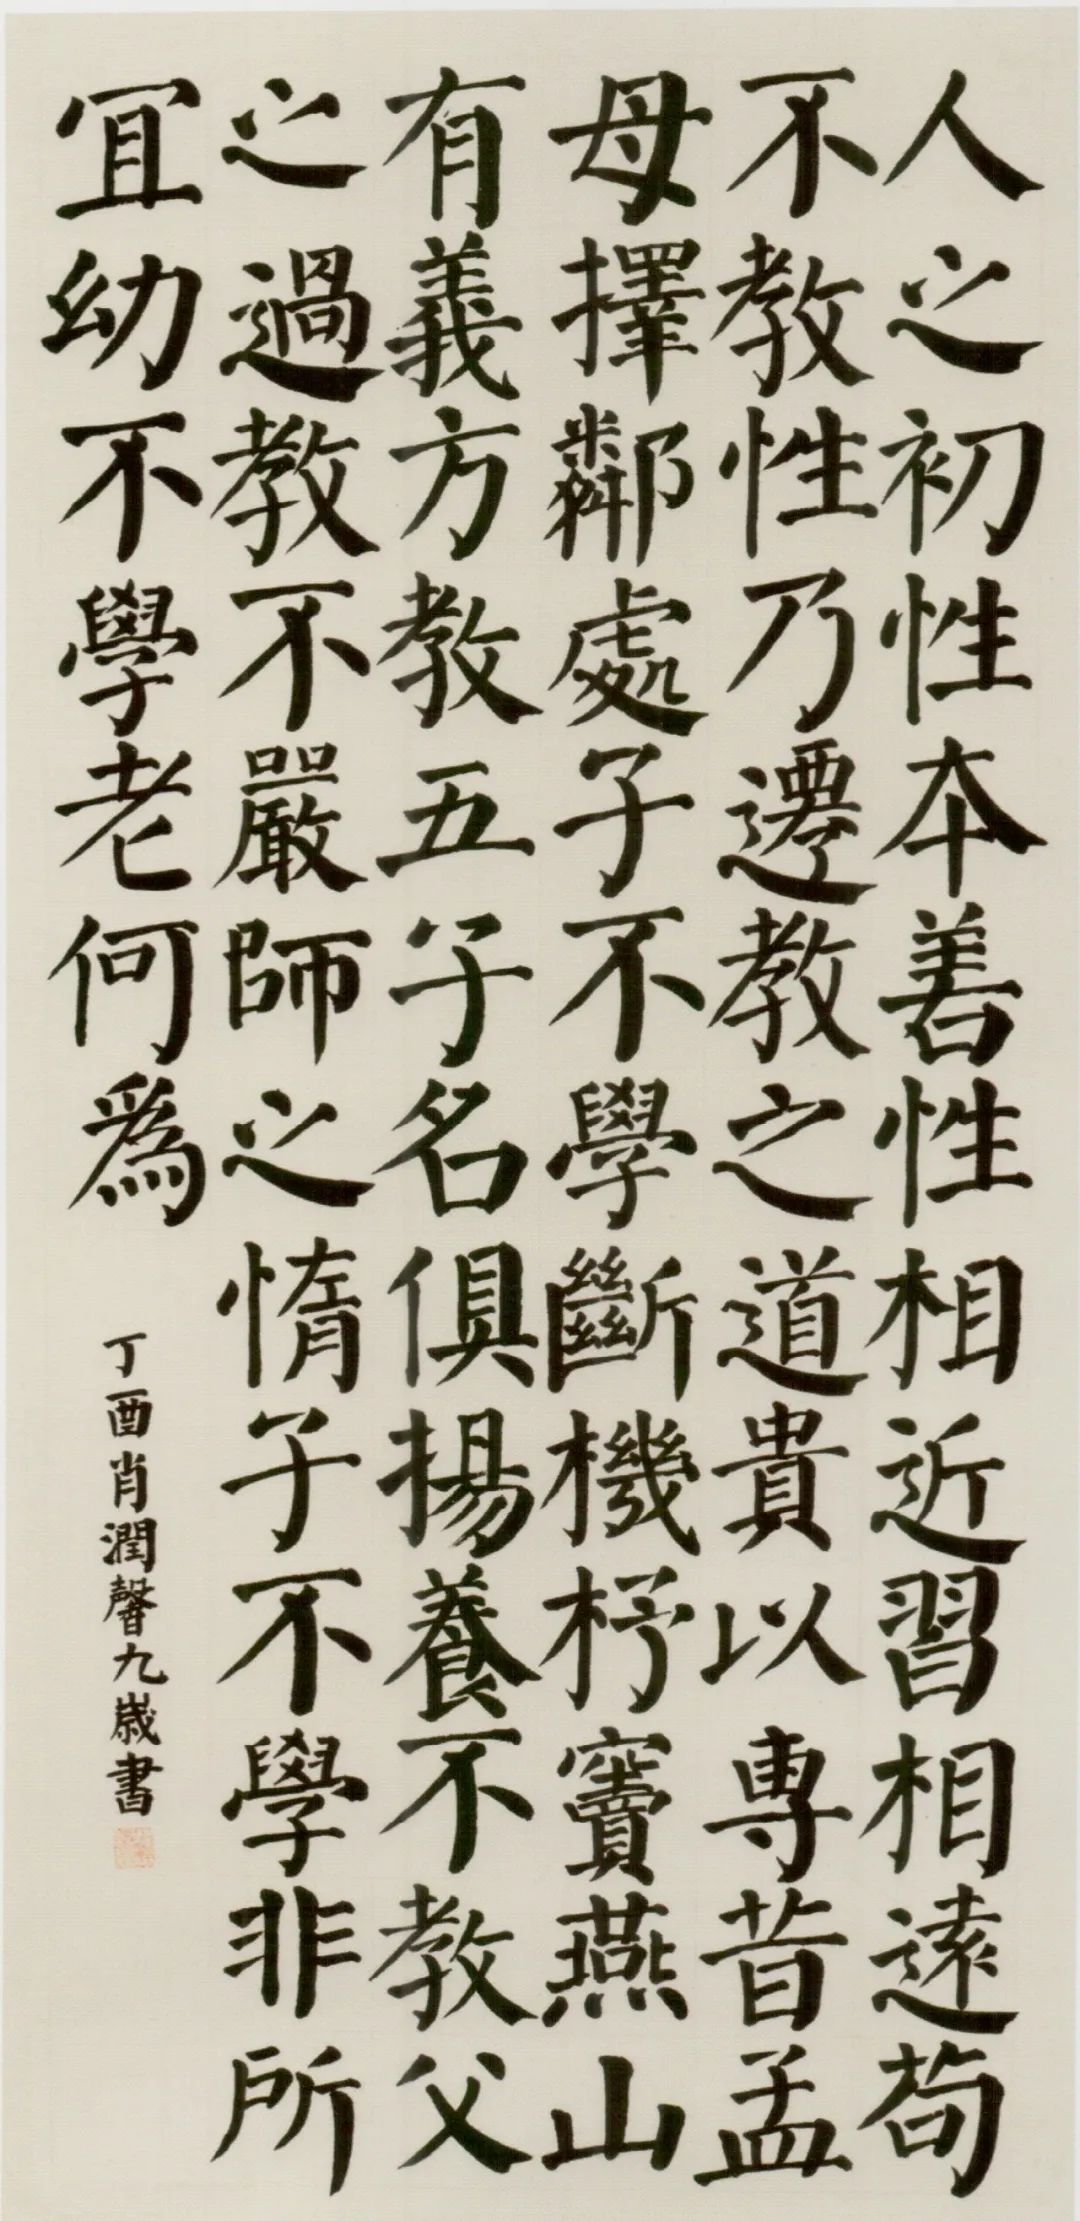 人之初性本善性相近習相遠苟
不教性乃遷教之道貴以專昔孟
母擇鄰處子不學斷機杼竇燕山
有義方教五子名俱揚養不教父
之過教不嚴師之惰子不學非所
宜幼不學老何為
丁酉肖潤馨九歲書